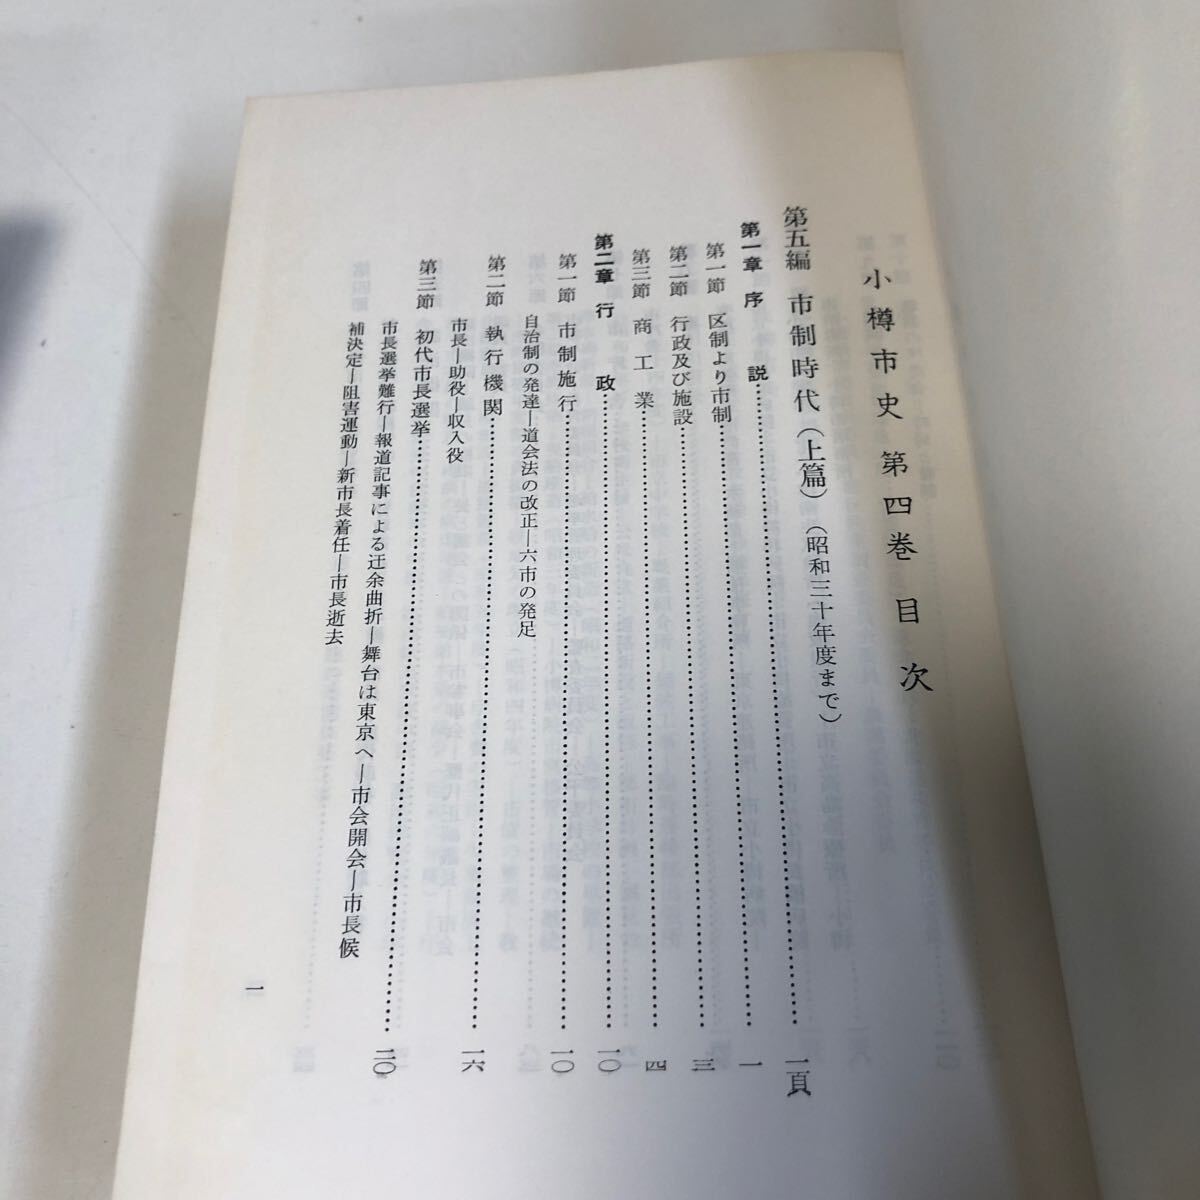 小樽市史 第四巻 目次
第五編 市制時代(上篇)(昭和三十年度まで)
第一章 序説……一頁
第一節 区制より市制……一
第二節 行政及び施設……三
第三節 商工業……四
第二章 行政……一〇
第一節 市制施行……一〇
自治制の発達―道会法の改正―六市の発足
第二節 執行機関……一六
市長―助役―収入役
第三節 初代市長選挙……二〇
市長選挙難行―報道記事による迂余曲折―舞台は東京へ―市会開会―市長候
補決定―阻害運動―新市長着任―市長逝去
一